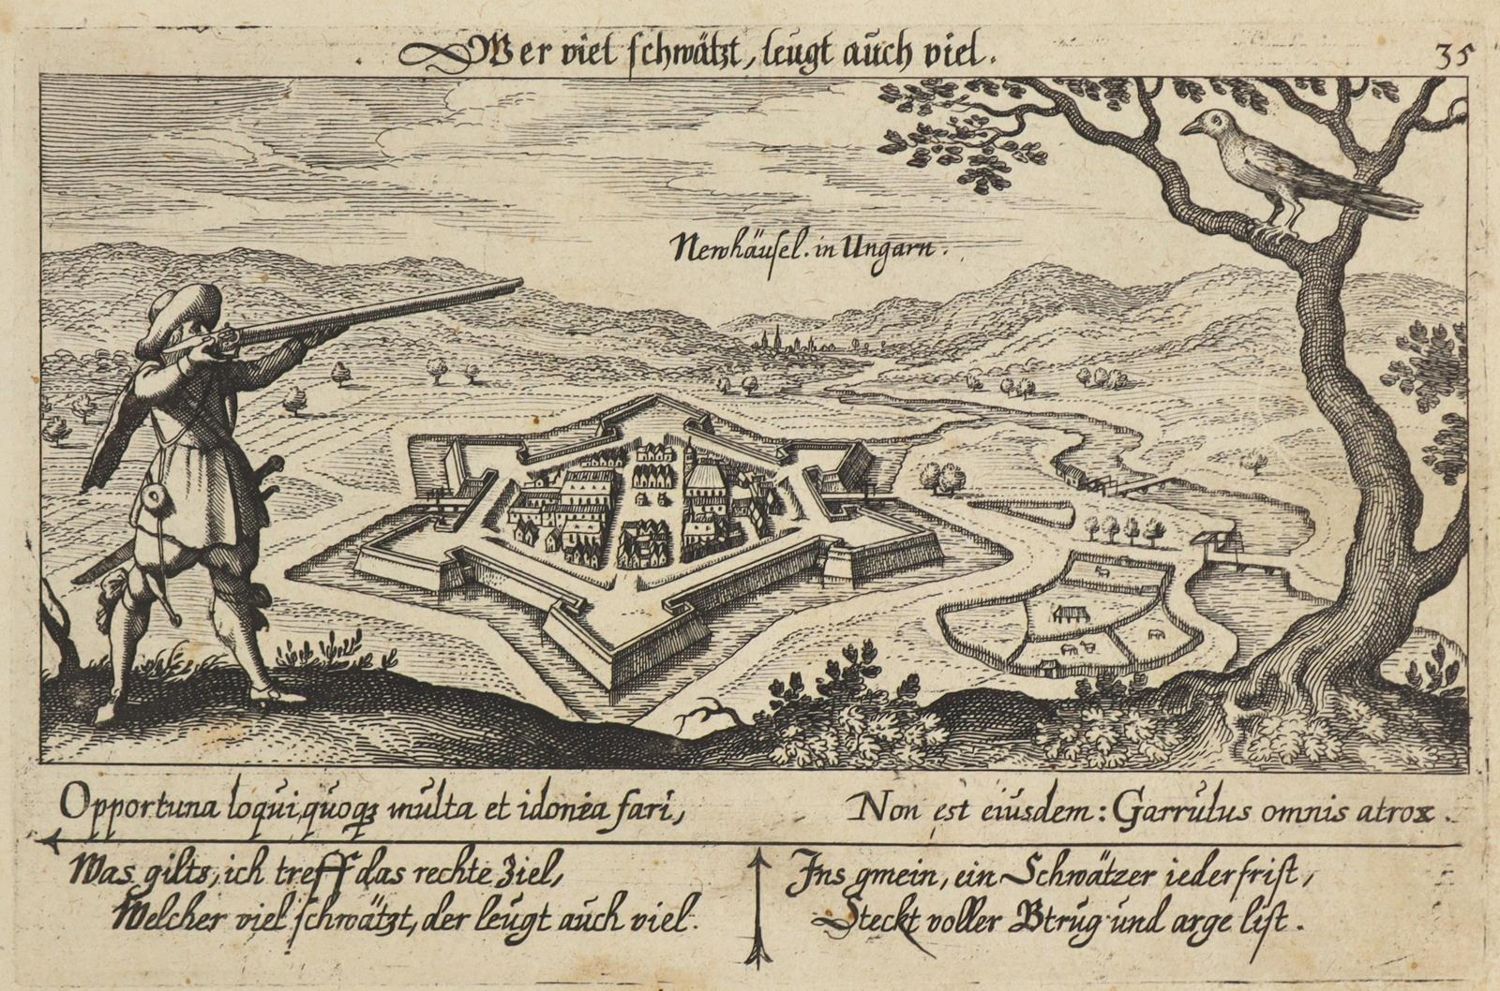 Wer viel schwätzt, leugt auch viel.
35
Newhäusel. in Ungarn.
Opportuna loqui, quoqꝫ multa et idonea fari,
Non est eiusdem: Garrulus omnis atrox.
Was gilts, ich treff das rechte Ziel,
Welcher viel schwätzt, der leugt auch viel.
Ins gmein, ein Schwätzer iederfrist,
Steckt voller Btrug und arge list.